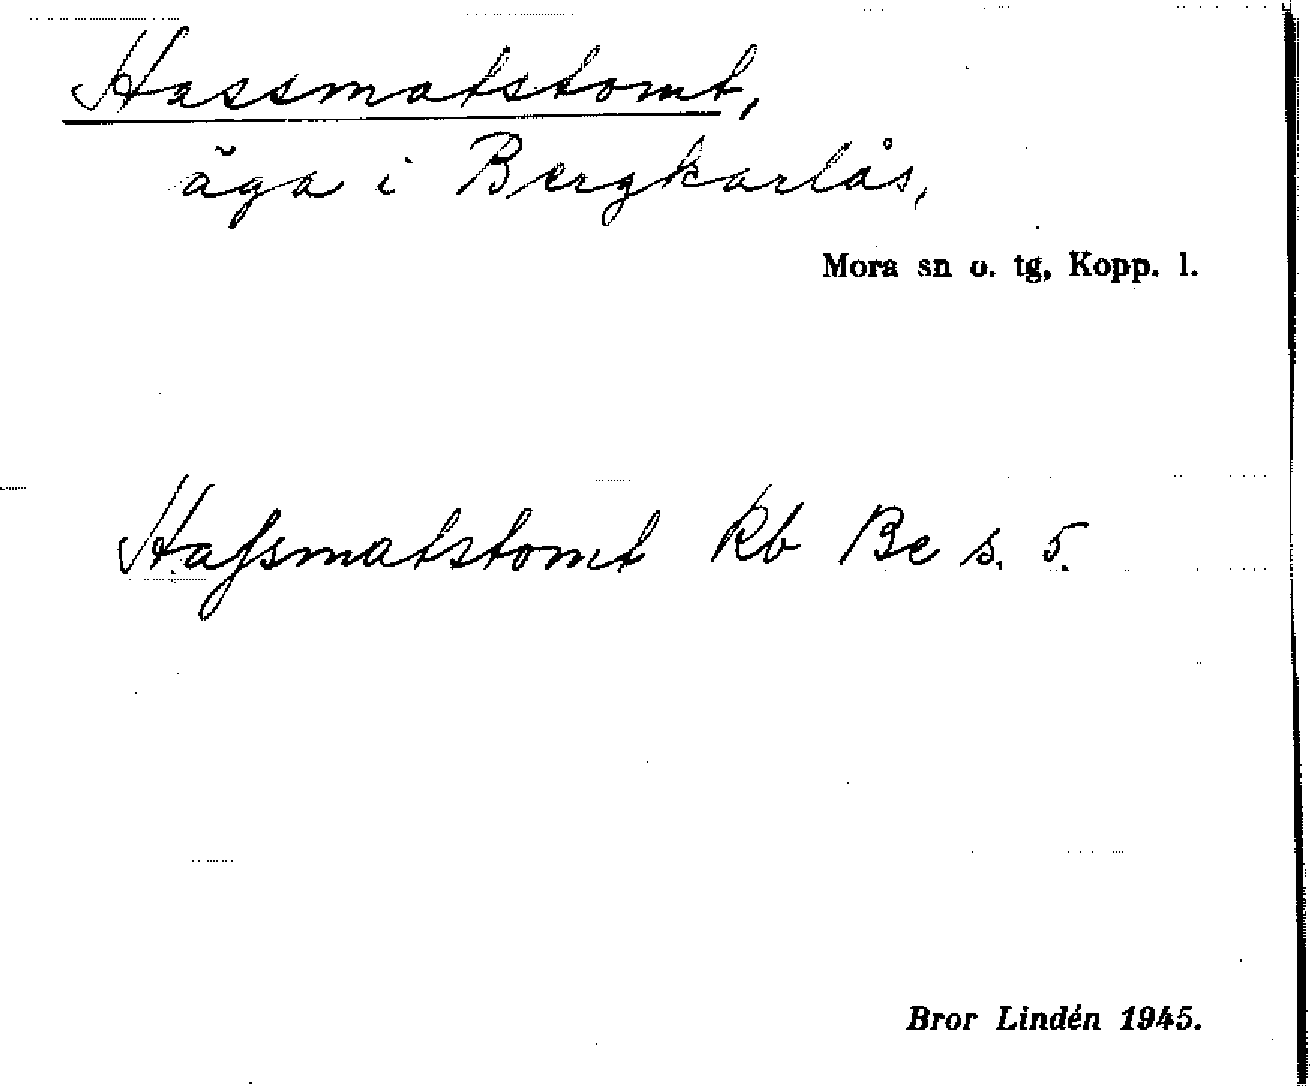 Hassmatstomt,
äga i Bergkarlås,
Mora sn o. tg, Kopp. l.
Haſsmatstomt kb Be s. 5.
Bror Lindén 1945.